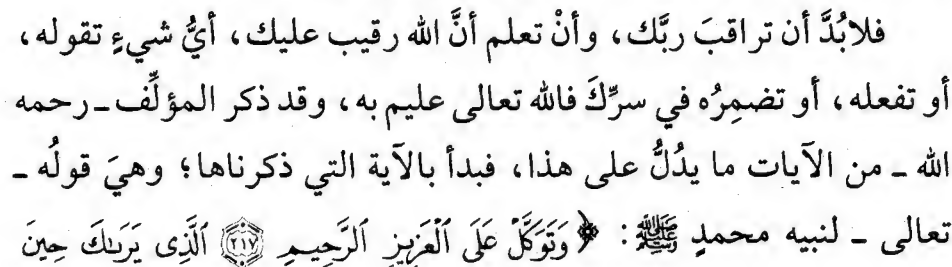 فلابُدَّ أن تراقبَ ربَّك، وأنْ تعلم أنَّ الله رقيب عليك، أيُّ شيءٍ تقوله،
أو تفعله، أو تضمِرُه في سرِّكَ فالله تعالى عليم به، وقد ذكر المؤلِّف ـ رحمه
الله ـ من الآيات ما يدُلُّ على هذا، فبدأ بالآية التي ذكرناها؛ وهيَ قولُه ـ
تعالى ـ لنبيه محمدٍ ﷺ: ﴿وَتَوَكَّلْ عَلَى ٱلْعَزِيزِ ٱلرَّحِيمِ ٢١٧ ٱلَّذِى يَرَىٰكَ حِينَ